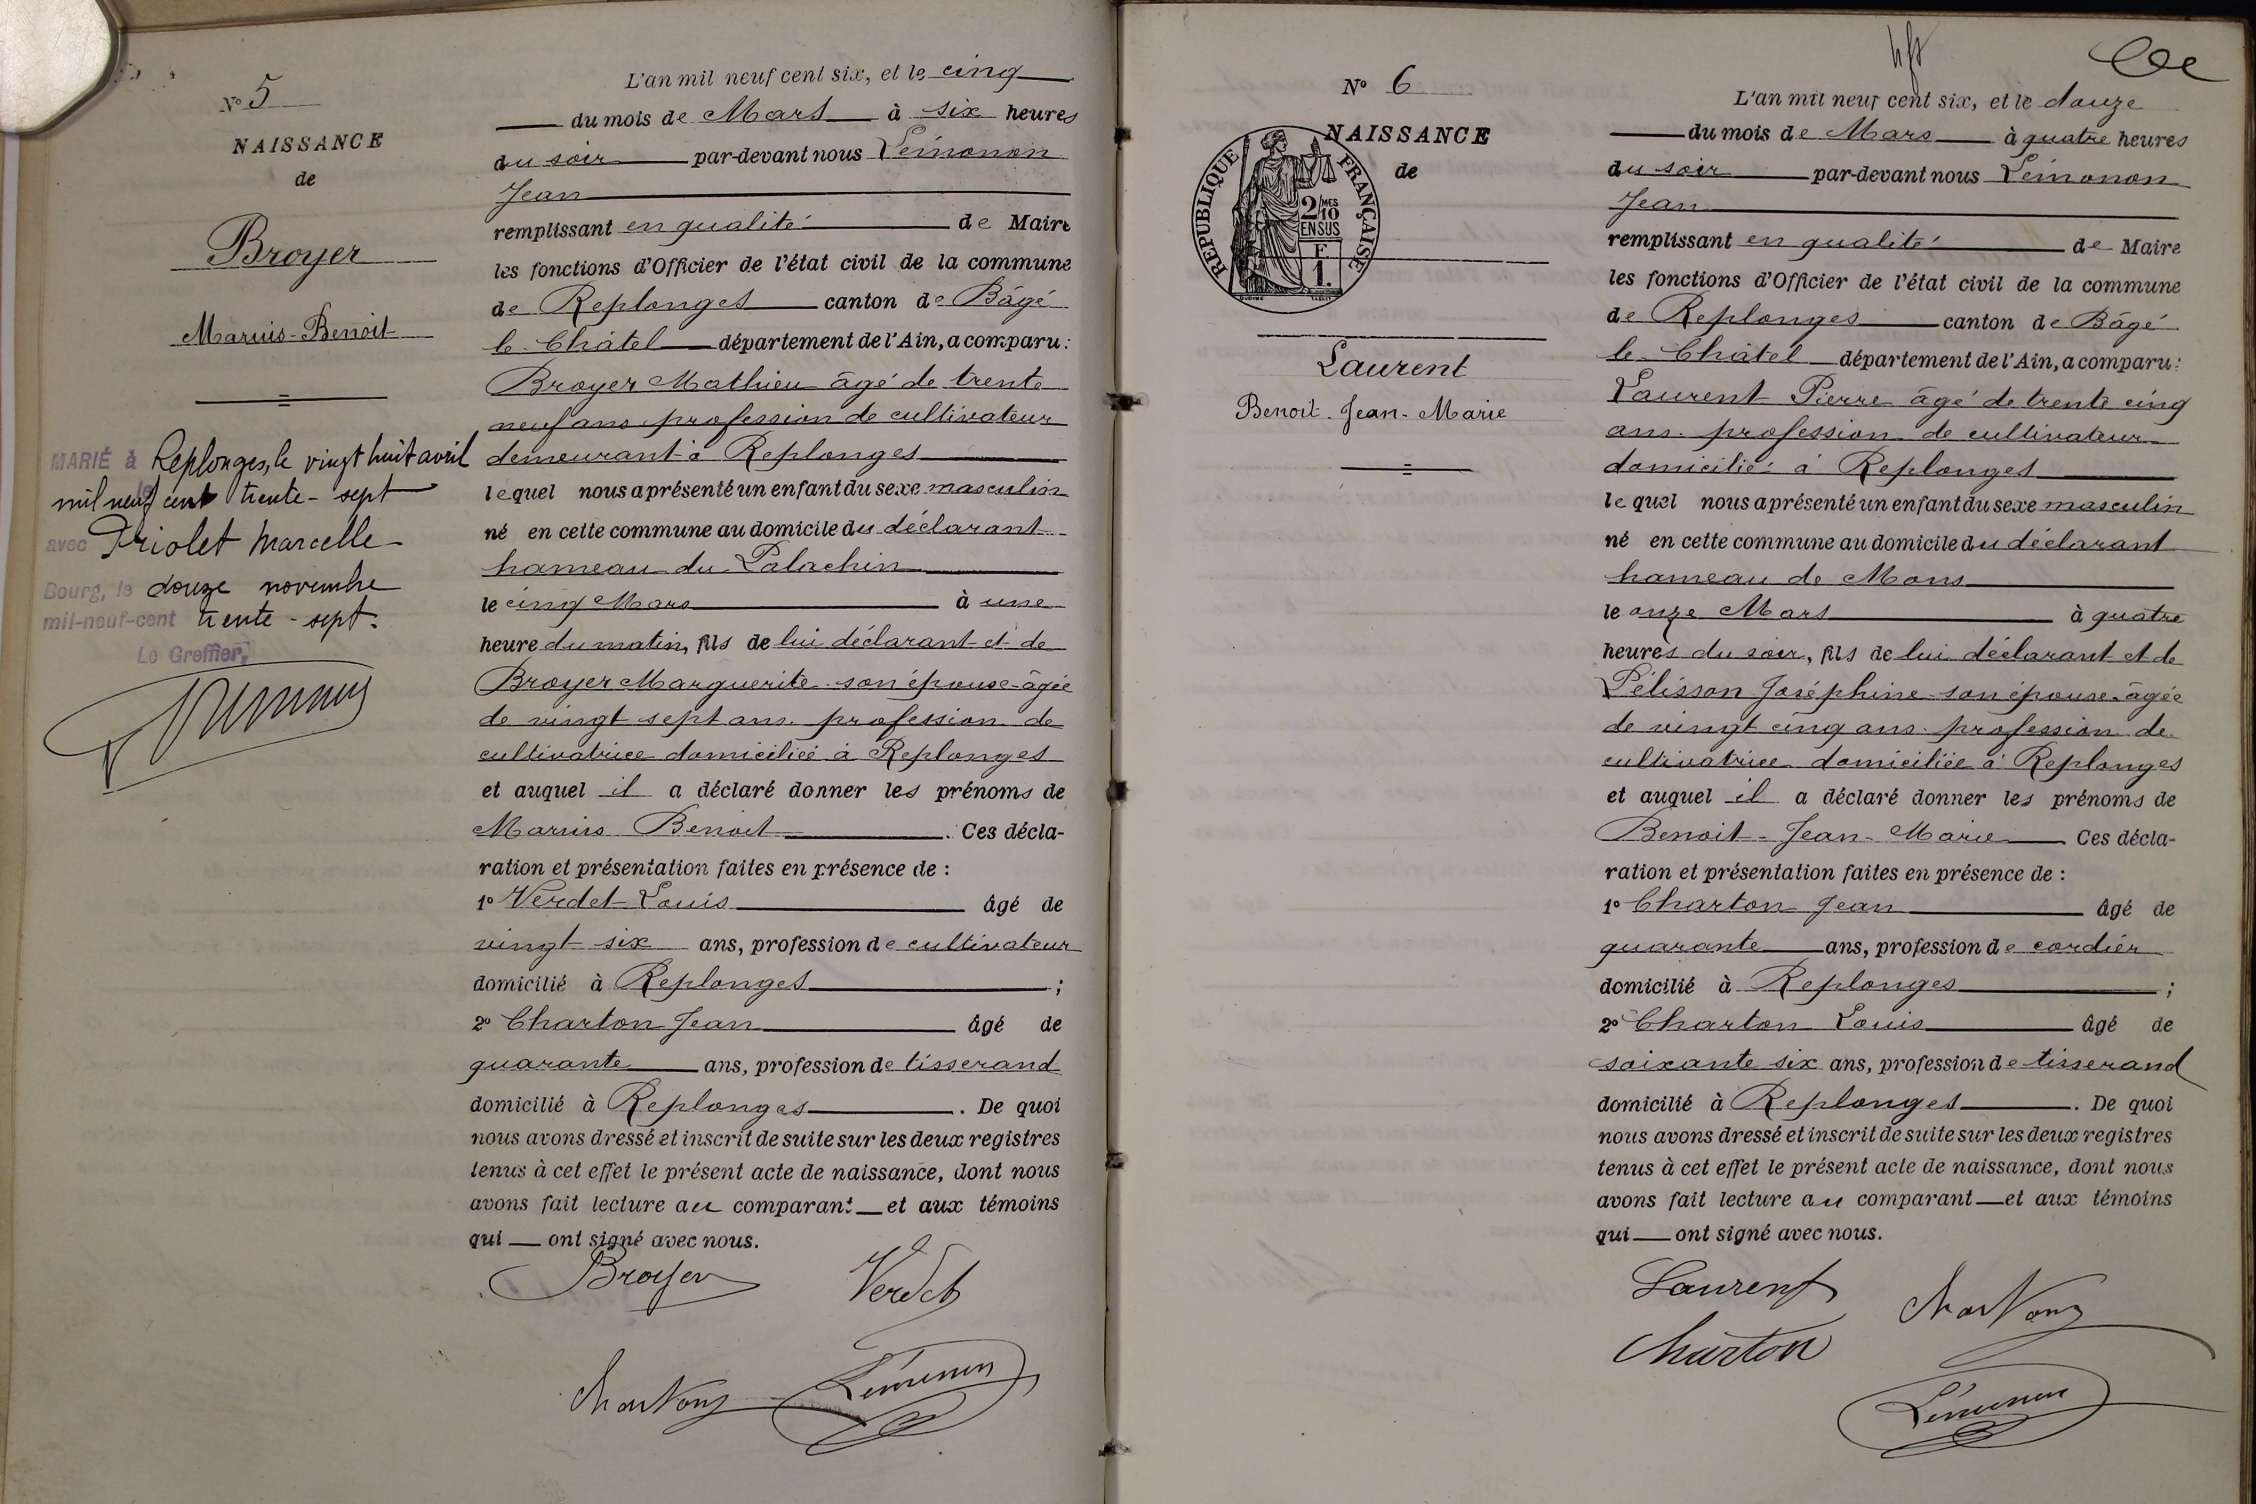 N° 5
NAISSANCE
de
Broyer
Marius-Benoit
MARIÉ à Replonges, le vingt huit avril
mil neuf cent trente-sept
avec Priolet Marcelle
Bourg, le douze novembre
mil-neuf-cent trente-sept.
Le Greffier,
L'an mil neuf cent six, et le cinq
du mois de Mars à six heures
du soir par-devant nous Lémonon
Jean
remplissant en qualité de Maire
les fonctions d'Officier de l'état civil de la commune
de Replonges canton de Bâgé
le Châtel département de l'Ain, a comparu:
Broyer Mathieu âgé de trente
neuf ans profession de cultivateur
demeurant à Replonges
lequel nous a présenté un enfant du sexe masculin
né en cette commune au domicile du déclarant
hameau du Palachin
le cinq Mars à une
heure du matin, fils de lui déclarant et de
Broyer Marguerite son épouse âgée
de vingt sept ans. profession de
cultivatrice domiciliée à Replonges
et auquel il a déclaré donner les prénoms de
Marius Benoit. Ces décla-
ration et présentation faites en présence de :
1° Verdet Louis âgé de
vingt six ans, profession de cultivateur
domicilié à Replonges ;
2° Charton Jean âgé de
quarante ans, profession de tisserand
domicilié à Replonges. De quoi
nous avons dressé et inscrit de suite sur les deux registres
tenus à cet effet le présent acte de naissance, dont nous
avons fait lecture au comparant et aux témoins
qui ont signé avec nous.
Broyer Verdet
Charton Lémonon
N° 6
NAISSANCE
de
REPUBLIQUE FRANÇAISE
2/10 MES
EN SUS
F.
1.
Laurent
Benoit-Jean-Marie
L'an mil neuf cent six, et le douze
du mois de Mars à quatre heures
du soir par-devant nous Lémonon
Jean
remplissant en qualité de Maire
les fonctions d'Officier de l'état civil de la commune
de Replonges canton de Bâgé
le Châtel département de l'Ain, a comparu:
Laurent Pierre âgé de trente cinq
ans. profession de cultivateur
domicilié à Replonges
lequel nous a présenté un enfant du sexe masculin
né en cette commune au domicile du déclarant
hameau de Mons
le onze Mars à quatre
heures du soir, fils de lui déclarant et de
Pélisson Joséphine son épouse âgée
de vingt cinq ans. profession de
cultivatrice domiciliée à Replonges
et auquel il a déclaré donner les prénoms de
Benoit-Jean-Marie Ces décla-
ration et présentation faites en présence de :
1° Charton Jean âgé de
quarante ans, profession de cordier
domicilié à Replonges ;
2° Charton Louis âgé de
soixante six ans, profession de tisserand
domicilié à Replonges. De quoi
nous avons dressé et inscrit de suite sur les deux registres
tenus à cet effet le présent acte de naissance, dont nous
avons fait lecture au comparant et aux témoins
qui ont signé avec nous.
Laurent Charton
Charton
Lémonon